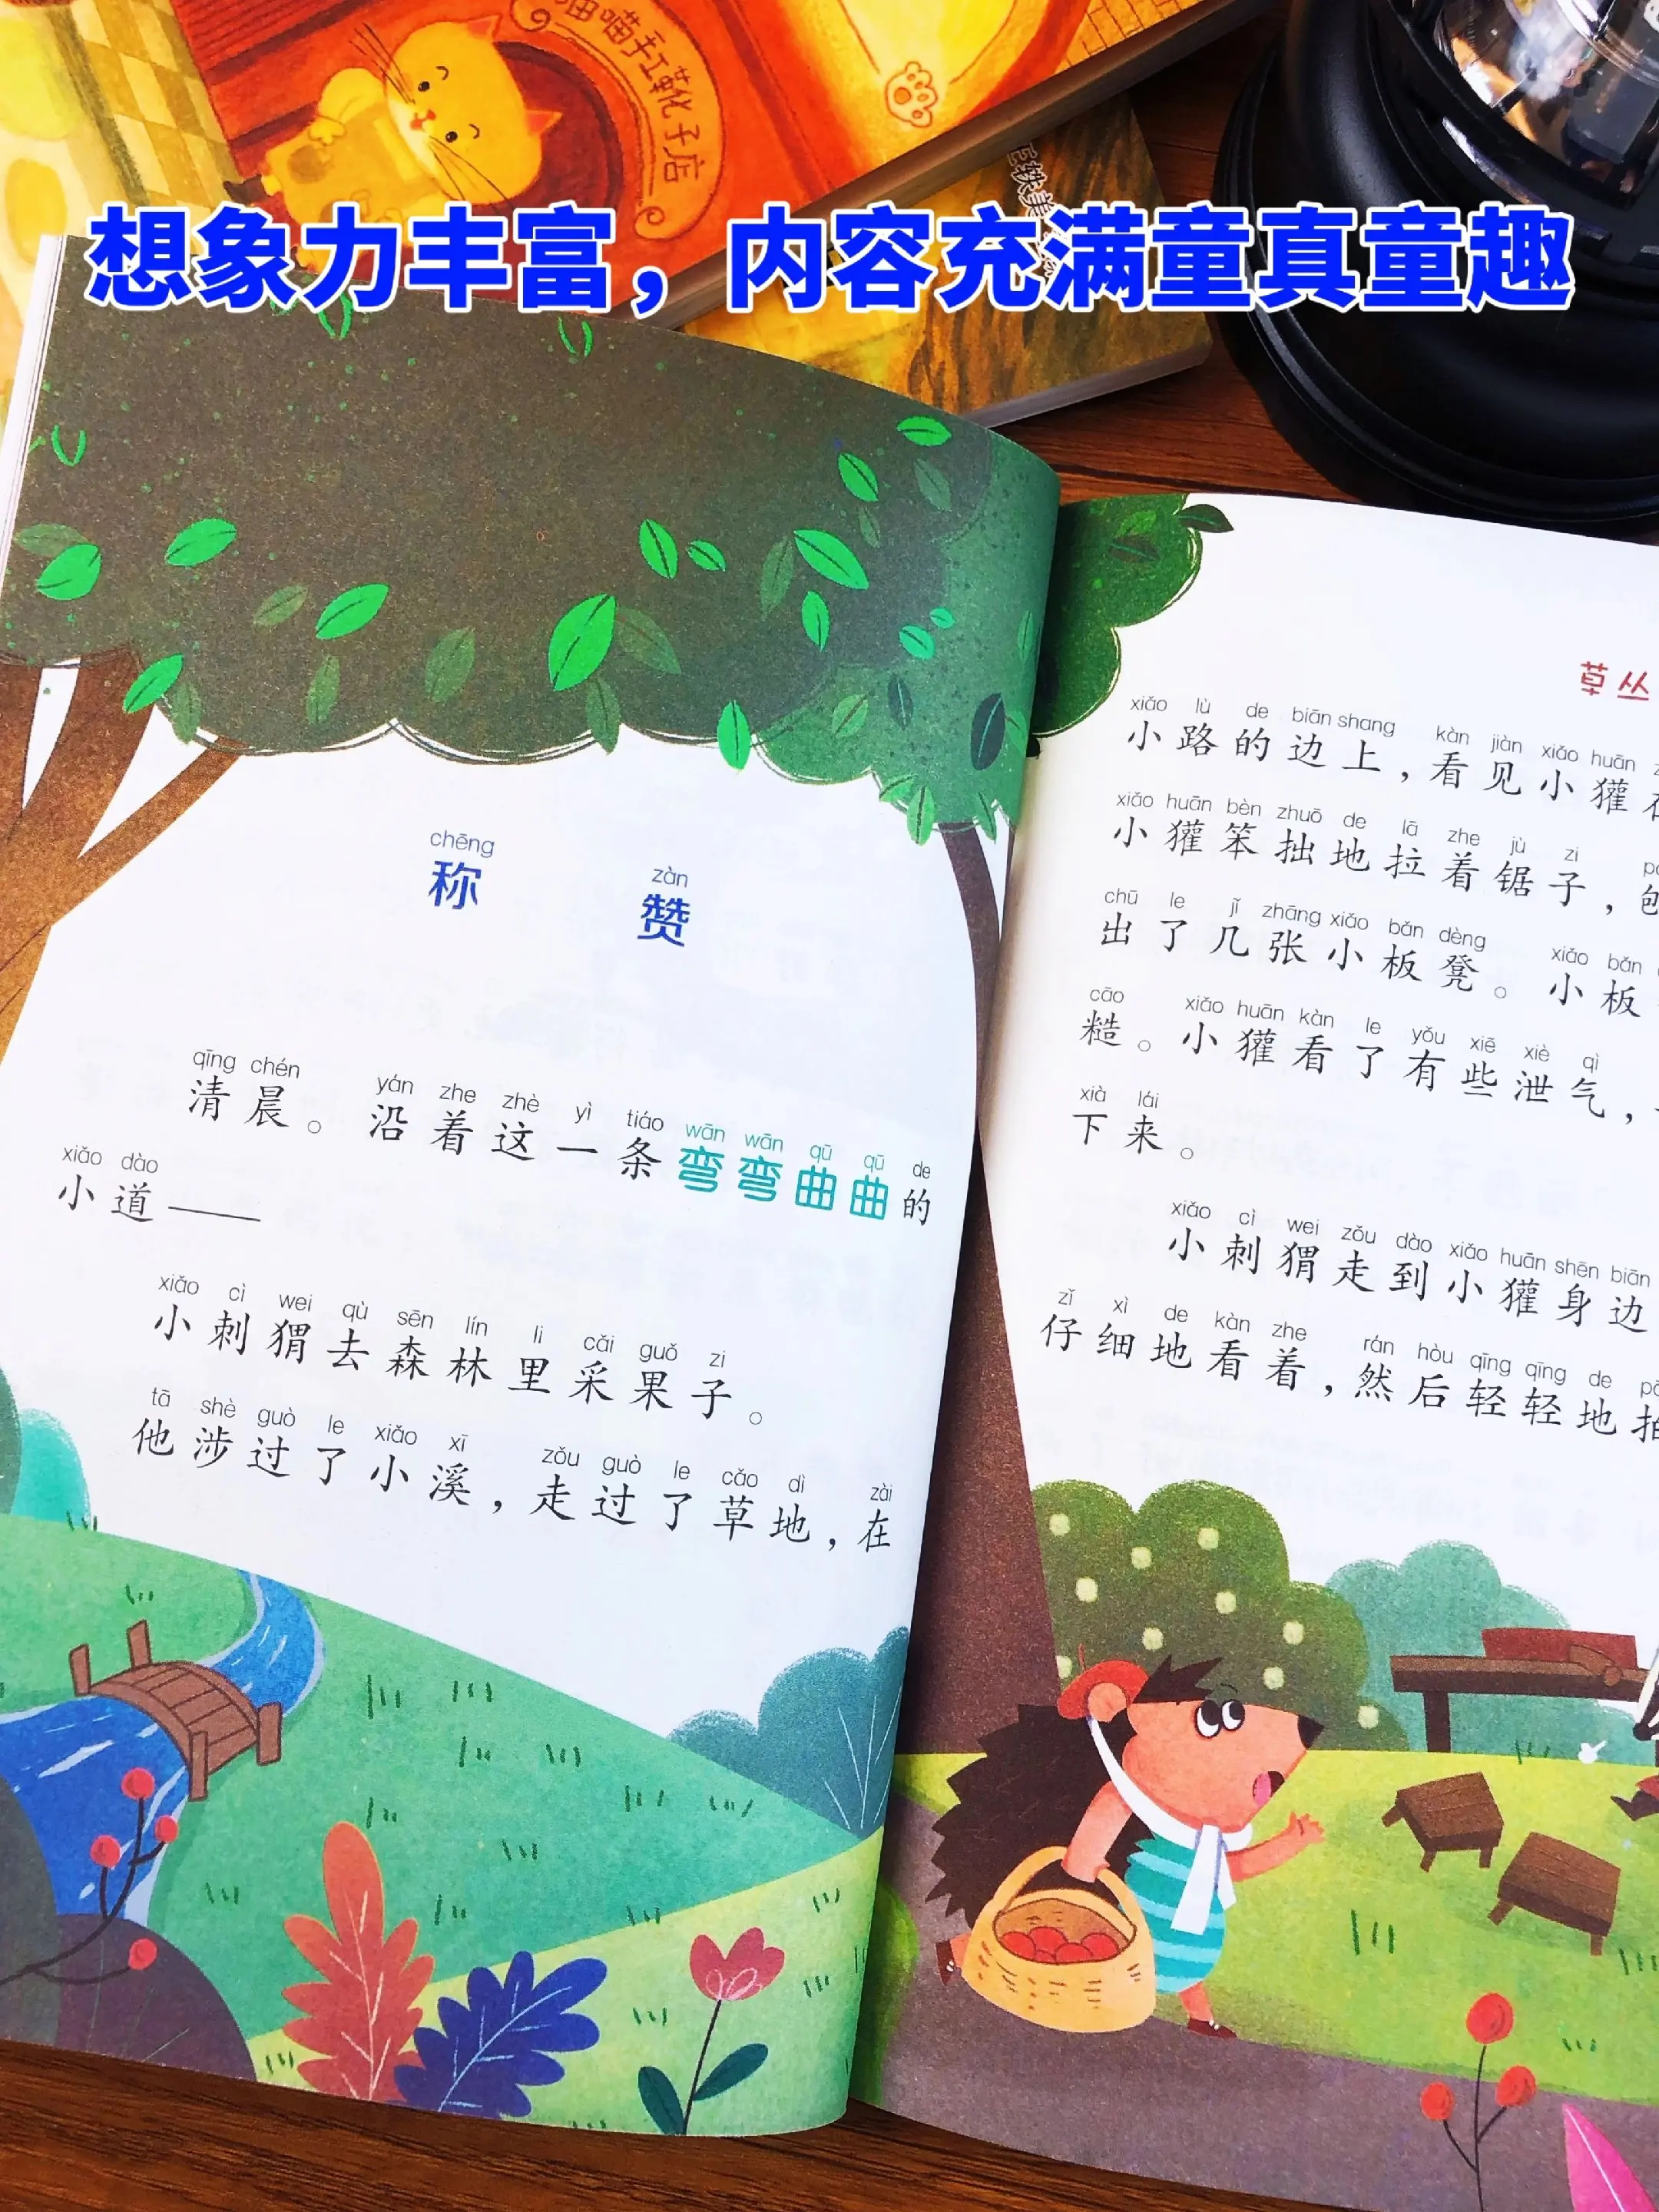 喵喵手工靴子店
想象力丰富，内容充满童真童趣
chēng zàn
称赞
qīng chén yán zhe zhè yì tiáo wān wān qū qū de
清晨。沿着这一条弯弯曲曲的
xiǎo dào
小道——
xiǎo cì wei qù sēn lín li cǎi guǒ zi
小刺猬去森林里采果子。
tā shè guò le xiǎo xī zǒu guò le cǎo dì zài
他涉过了小溪，走过了草地，在
草丛
xiǎo lù de biān shang kàn jiàn xiǎo huān
小路的边上，看见小獾
xiǎo huān bèn zhuō de lā zhe jù zi
小獾笨拙地拉着锯子，
chū le jǐ zhāng xiǎo bǎn dèng xiǎo bǎn
出了几张小板凳。小板
cāo xiǎo huān kàn le yǒu xiē xiè qì
糙。小獾看了有些泄气，
xià lái
下来。
xiǎo cì wei zǒu dào xiǎo huān shēn biān
小刺猬走到小獾身边
zǐ xì de kàn zhe rán hòu qīng qīng de
仔细地看着，然后轻轻地